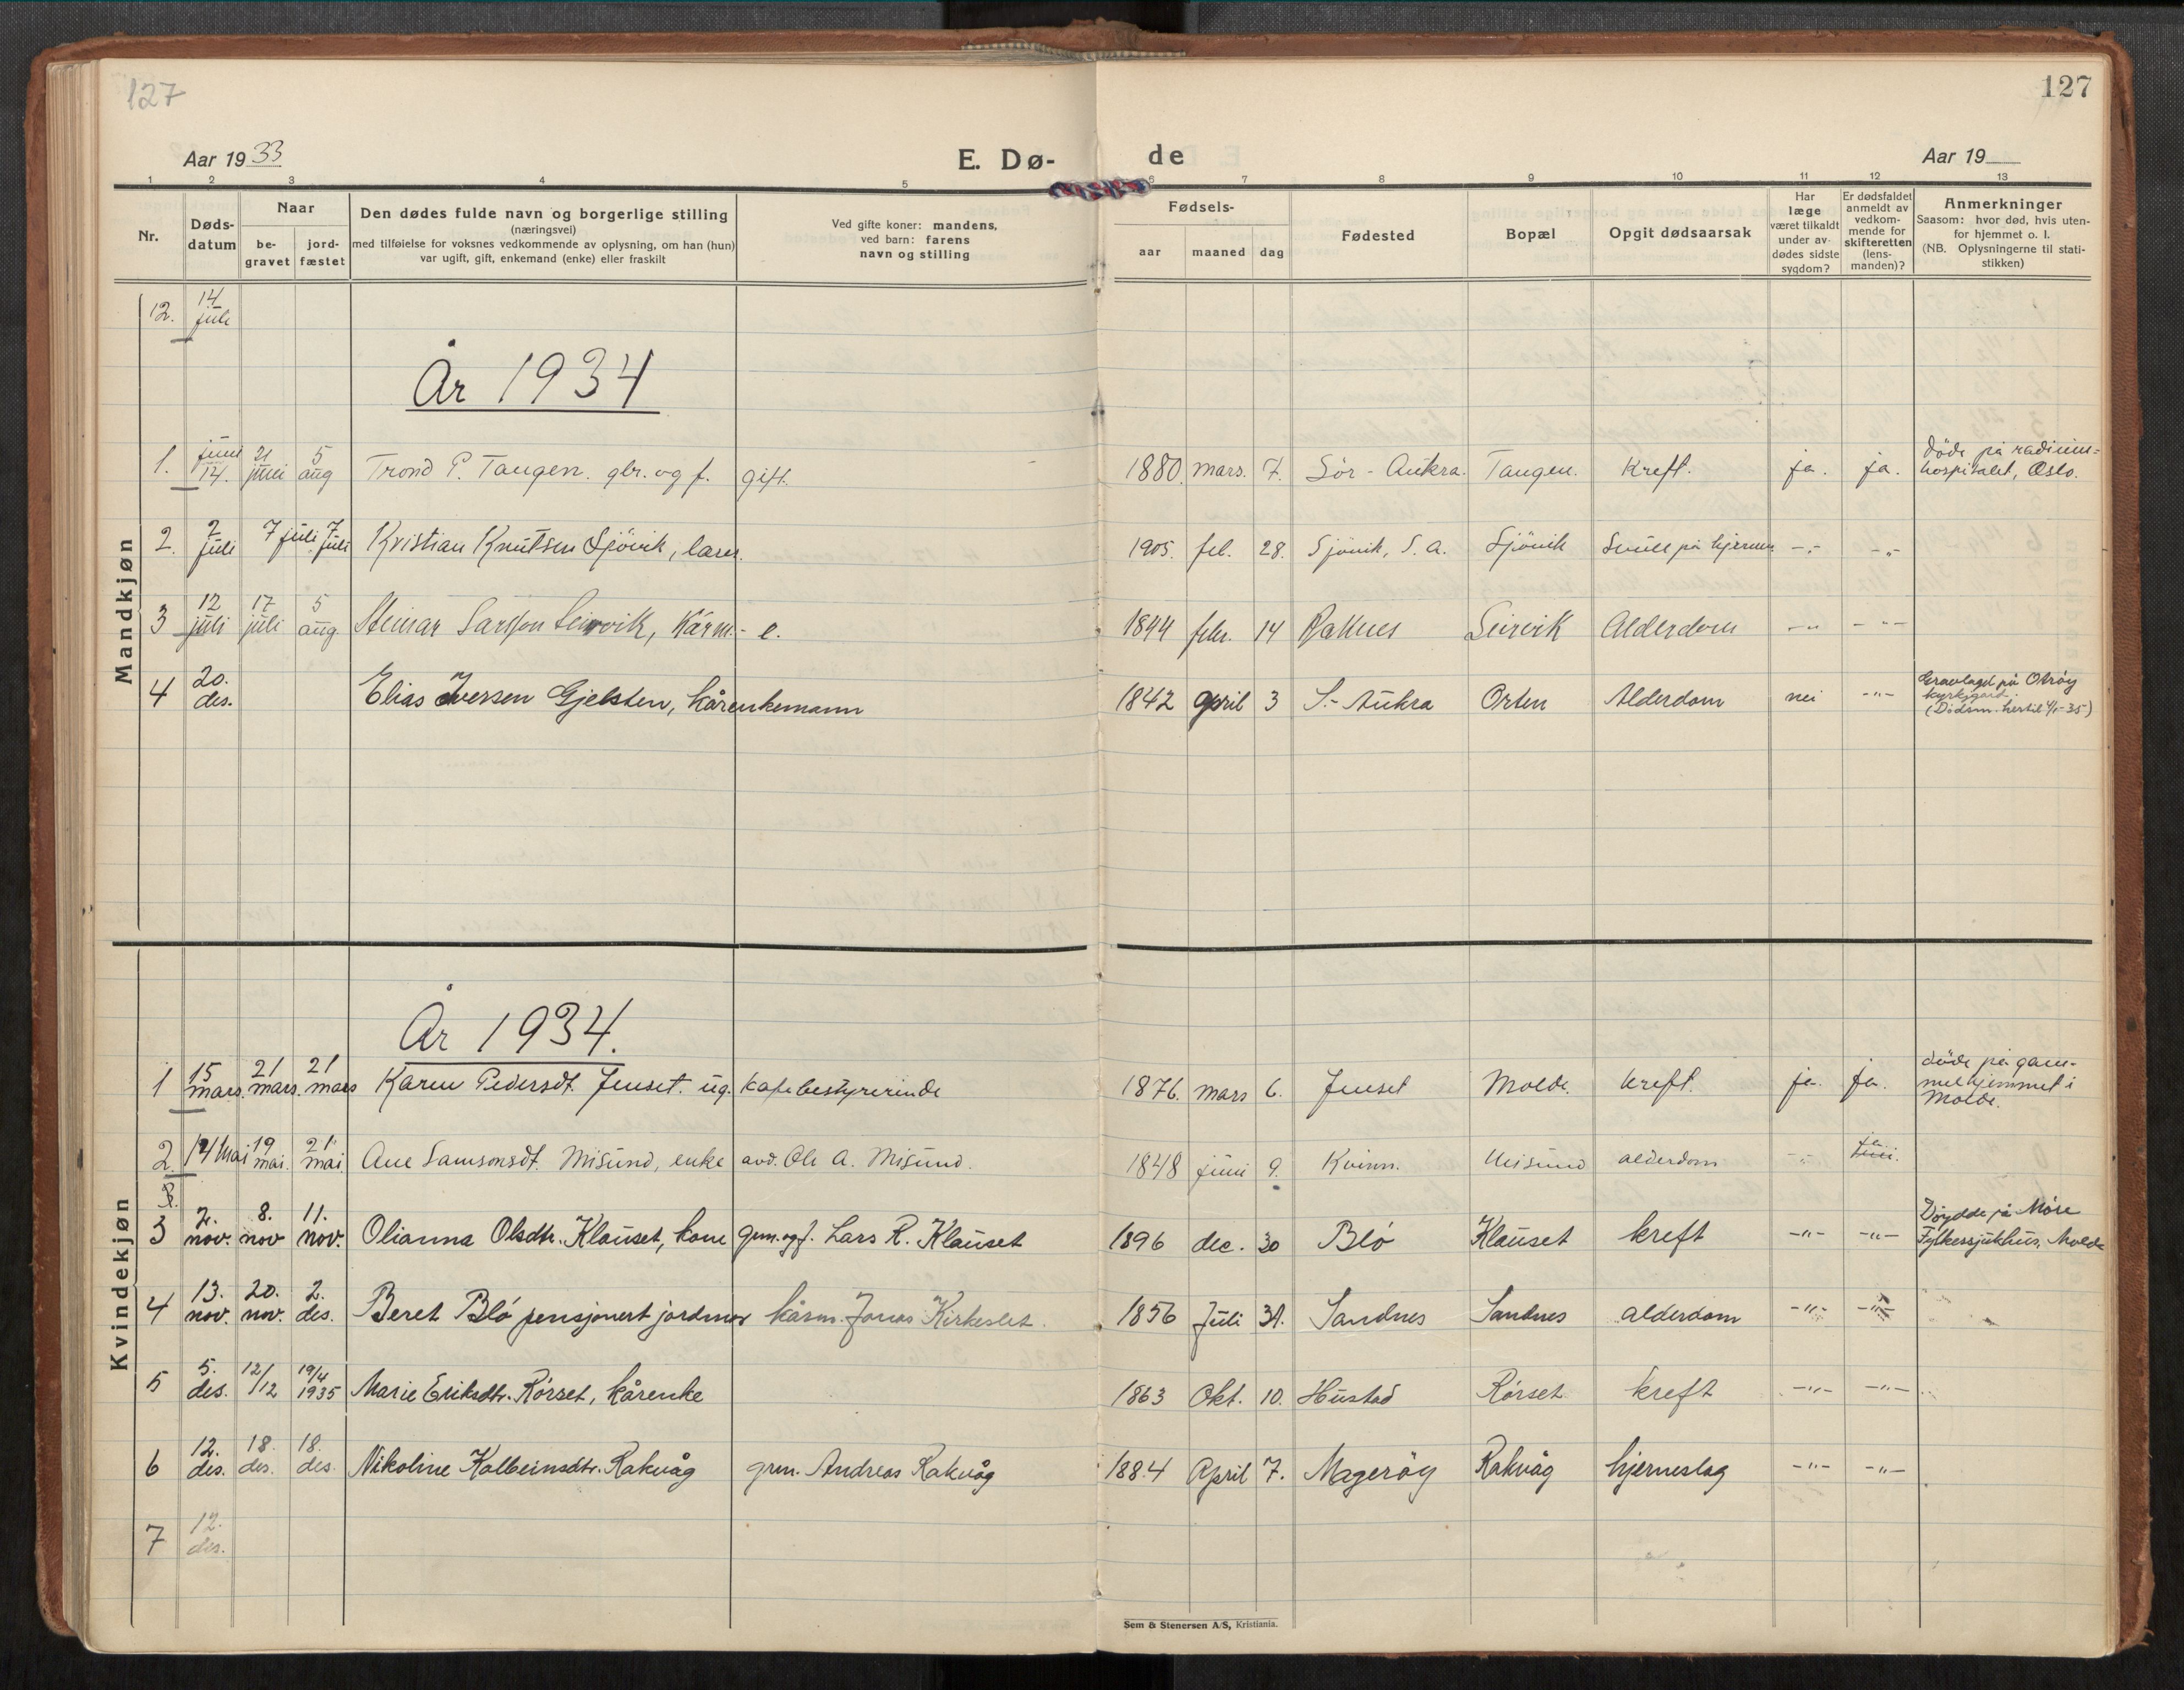 127
127
Aar 19 33
E. Dø-
de
Aar 19
1 2 3 4 5 6 7 8 9 10 11 12 13
Nr.
Døds-
datum
Naar
be-
gravet
jord-
fæstet
Den dødes fulde navn og borgerlige stilling
(næringsvei)
med tilføielse for voksnes vedkommende av oplysning, om han (hun)
var ugift, gift, enkemand (enke) eller fraskilt
Ved gifte koner: mandens,
ved barn: farens
navn og stilling
Fødsels-
aar maaned dag
Fødested
Bopæl
Opgit dødsaarsak
Har
læge
været tilkaldt
under av-
dødes sidste
sygdom?
Er dødsfaldet
anmeldt av
vedkom-
mende for
skifteretten
(lens-
manden)?
Anmerkninger
Saasom: hvor død, hvis uten-
for hjemmet o. l.
(NB. Oplysningerne til stati-
stikken)
Mandkjøn
12. 14 juli
År 1934
1. juni 14. 21 juli 5 aug Trond P. Tangen. gbr. og f. gift. 1880. mars. 7. Sör-Aukra. Tangen. Kreft. ja. ja. döde på radium-
hospitalet, Oslo.
2. 2 juli 7 juli 7 juli Kristian Knutsen Sjövik, lærer. 1905. feb. 28. Sjövik, S. A. Sjövik Svull på hjernen -"- -"-
3 12 juli 17 juli 5 aug. Steinar Larsson Leirvik, Kårm.- e. 1844 febr. 14 Leirvik Alderdom -"- -"-
4 20. des. Elias Iversen Gjelsten, kårenkemann 1842 april 3 S.-Aukra Orten Alderdom nei -"- Gravlagd på Otröy
kyrkjgard.
(Dødsm. hertil 4/1-35)
Kvindekjøn
År 1934.
1 15 mars. 21 mars. 21 mars Karen Pedersdt. Jenset. ug. kafebestyrerinde 1876. mars 6. Jenset Molde. kreft. ja. ja. döde på gam-
melhjemmet i
Molde.
2. 14 Mai 19 mai. 21 mai Ane Samsonsdt. Misund, enke avd. Ole A. Misund. 1848 juni 9. Kvinn. Misund alderdom -"- ja.
3 2. nov. 8. nov 11. nov. Olianna Olsdtr. Klauset, kone grm. og f. Lars R. Klauset 1896 dec. 30 Bló Klauset kreft -"- -"- Döydde på Möre
Fylkessjukhus, Molde
4 13. nov. 20. nov. 2. des. Beret Bló pensjonert jordmor kårm. Jonas Kirkeslet. 1856 Juli 31. Sandnes Sandnes alderdom -"- -"-
5 5. des. 12/12 19/4 1935 Marie Eriksdtr. Rórset, kårenke 1863 Okt. 10. Hustad Rórset kreft -"- -"-
6 12. des. 18. des. 18. des. Nikoline Kolbeinsdtr. Rakvåg grm. Andreas Rakvåg 1884 April 7. Mageröy Rakvåg hjerneslag -"- -"-
7 12. des.
Sem & Stenersen A/S, Kristiania.